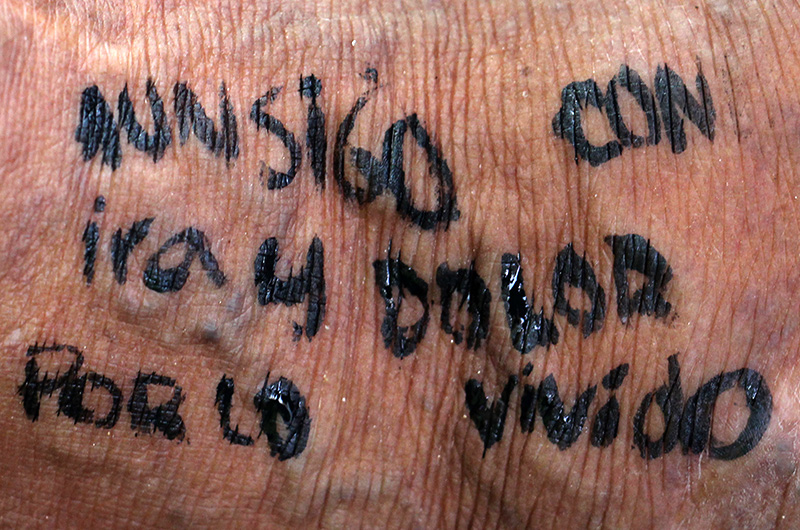 AUN SIGO CON
ira y DOLOR
POR LO ViVidO